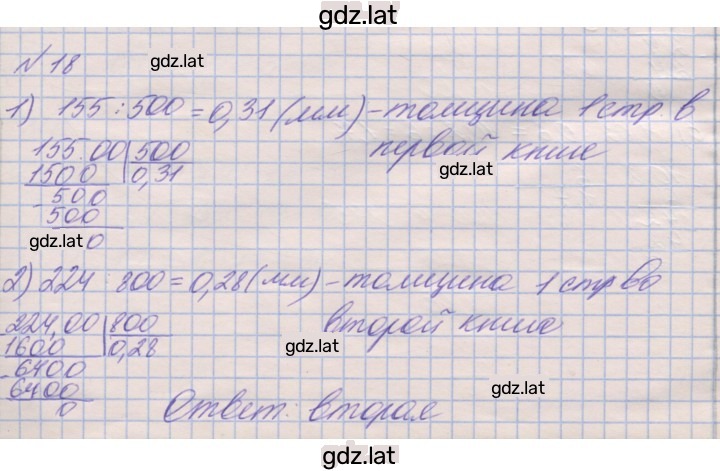 gdz.lat
N 18 gdz.lat
1) 155 : 500 = 0,31 (мм) - толщина 1 стр. в
первой книге
155.00 500
1500 0,31
500
500
0
gdz.lat
gdz.lat
2) 224 : 800 = 0,28 (мм) - толщина 1 стр во
второй книге
224,00 800
1600 0,28
6400
6400
0
gdz.lat
gdz.lat
Ответ: вторая
gdz.lat